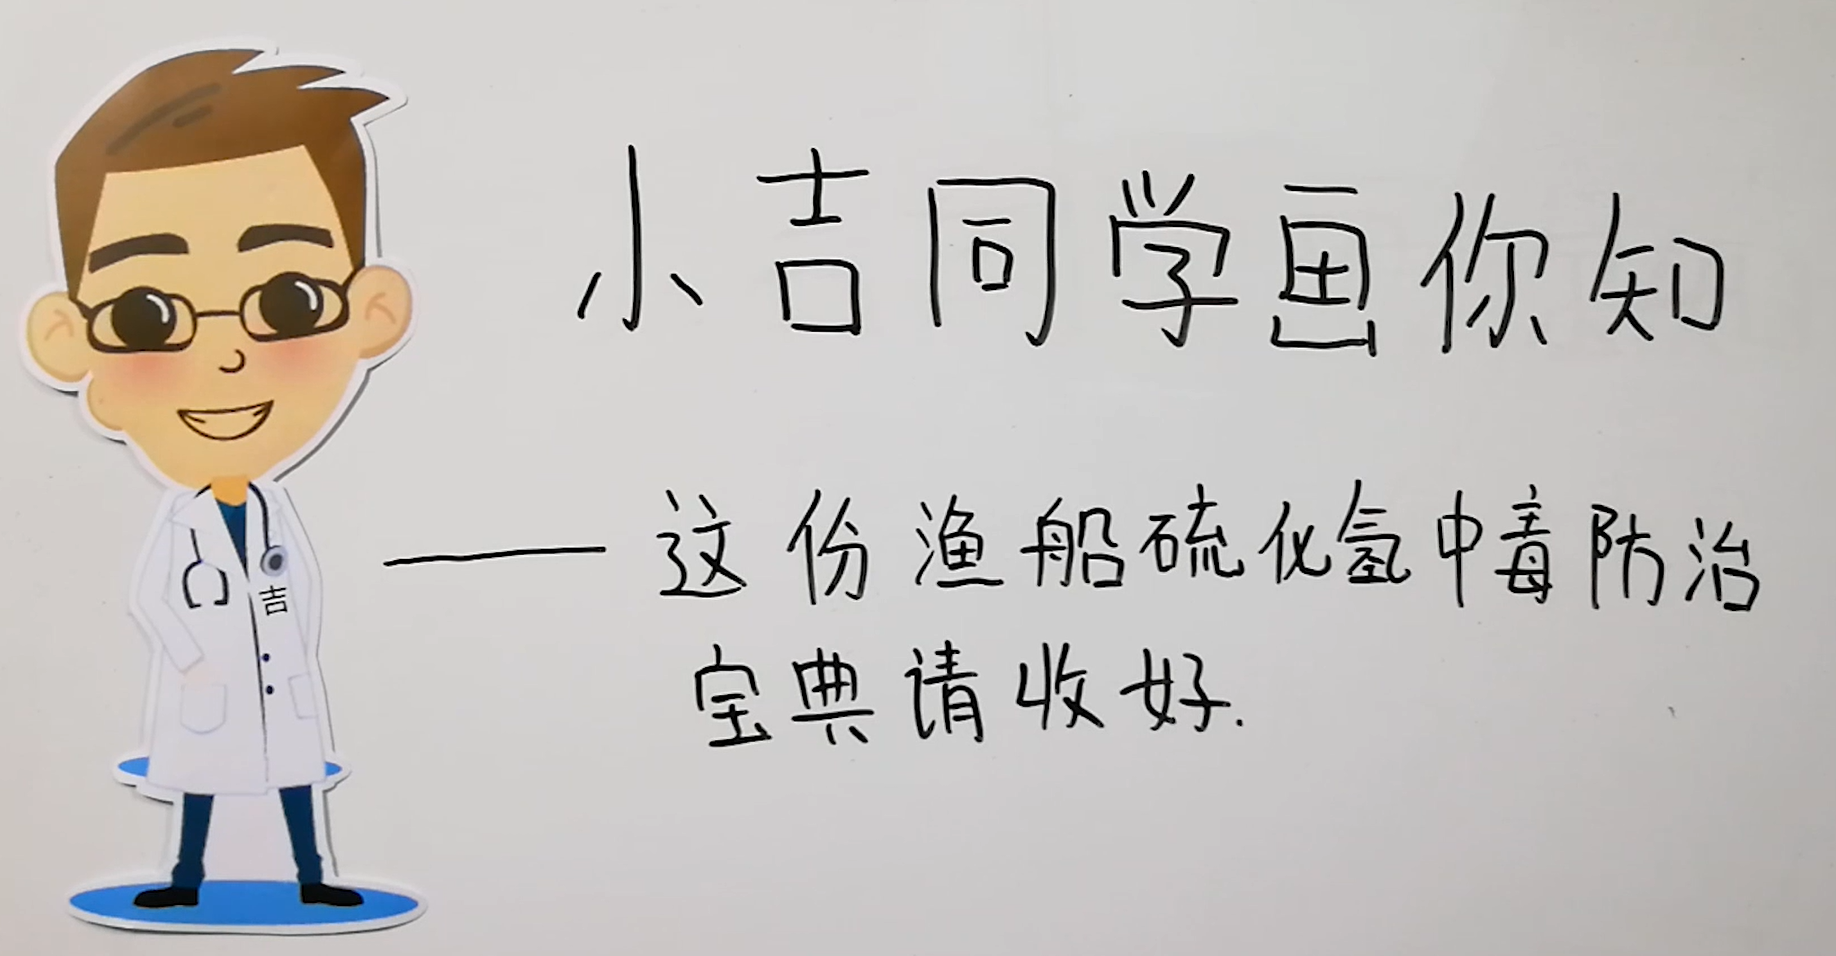 小吉同学画你知
——这份渔船硫化氢中毒防治
宝典请收好.
吉